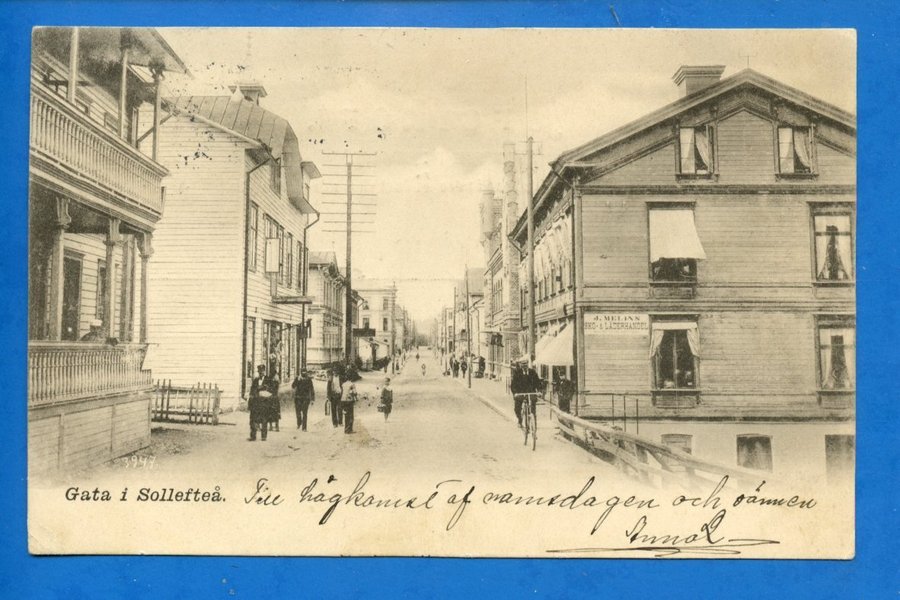 J. MELINS
SKO- & LÄDERHANDEL
3947
Gata i Sollefteå. Till hågkomst af namsdagen och vännen
Anna